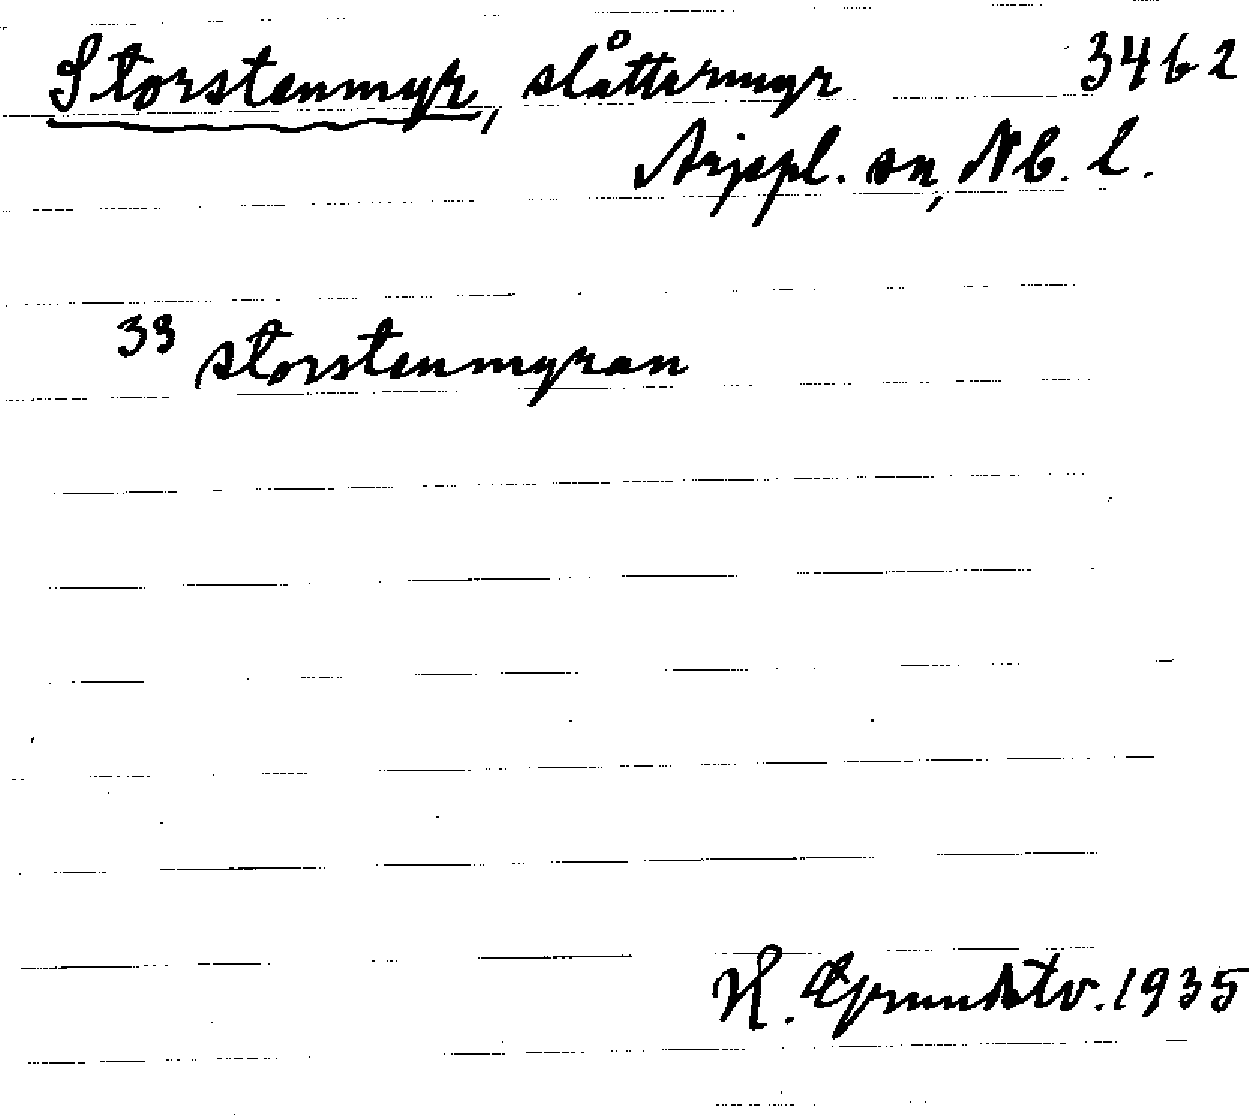 Storstenmyr, slåttermyr 3462
Arjepl. sn, Nb. l.
33 storstenmyran
H. Grundstr. 1935